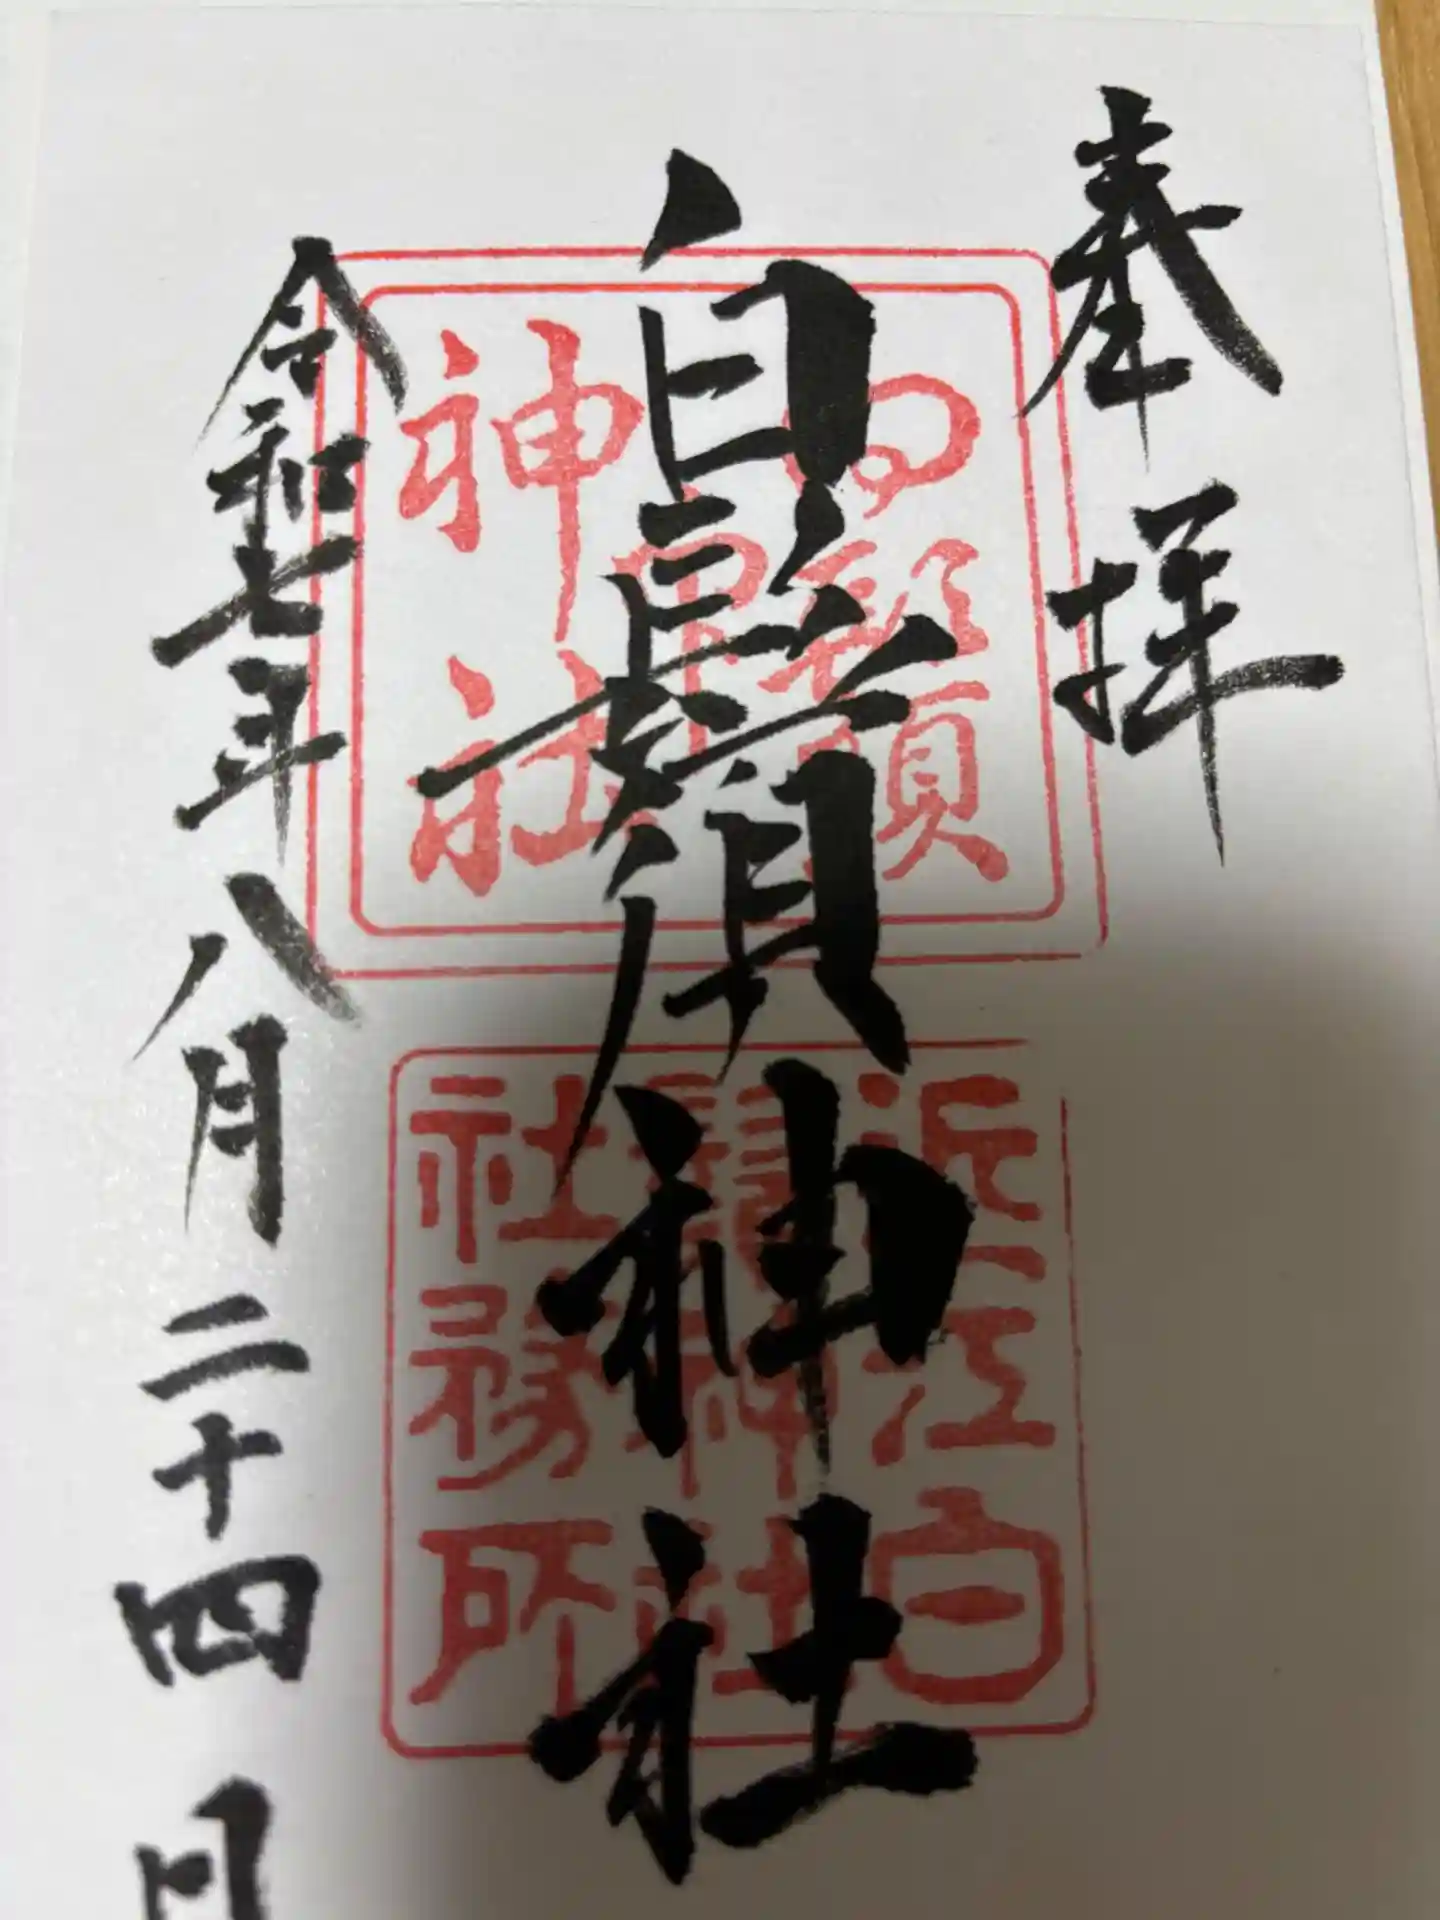 奉拝
白鬚神社
令和七年八月二十四日
神社
近江白
鬚神社
社務所